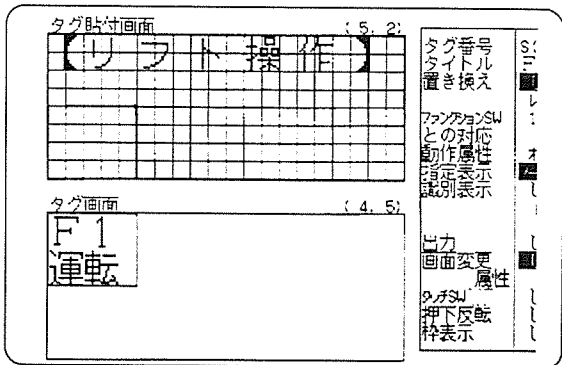 タグ貼付画面 (5, 2)
【リフト操作】
タグ画面 (4, 5)
F1
運転
タグ番号
タイトル
置き換え
ファンクションSW
との対応
動作属性
指定表示
識別表示
出力
画面変更
属性
タッチSW
押下反転
枠表示